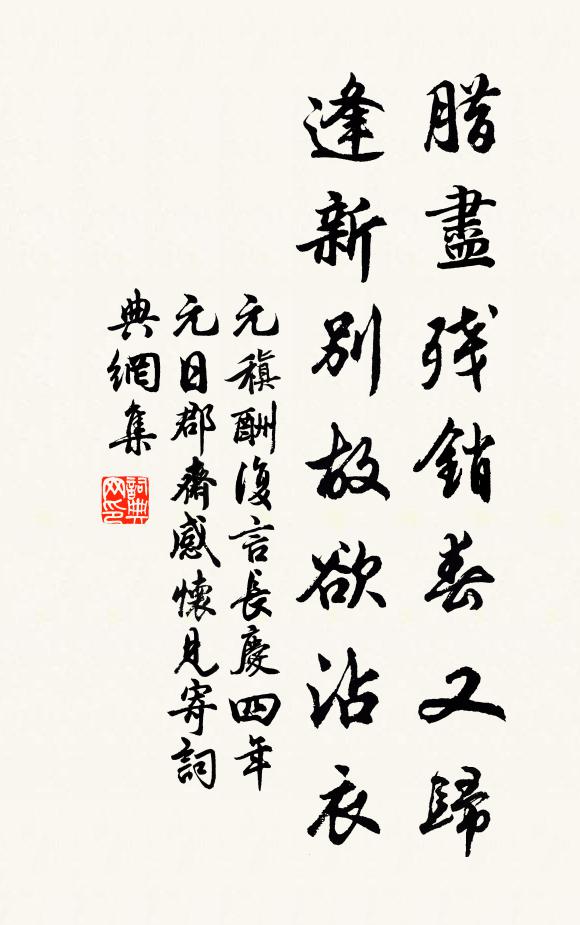 腊盡残銷春又歸
逢新別故欲沾衣
元稹酬復言長慶四年
元日郡齋感懷見寄詞
典網集
詞典网印